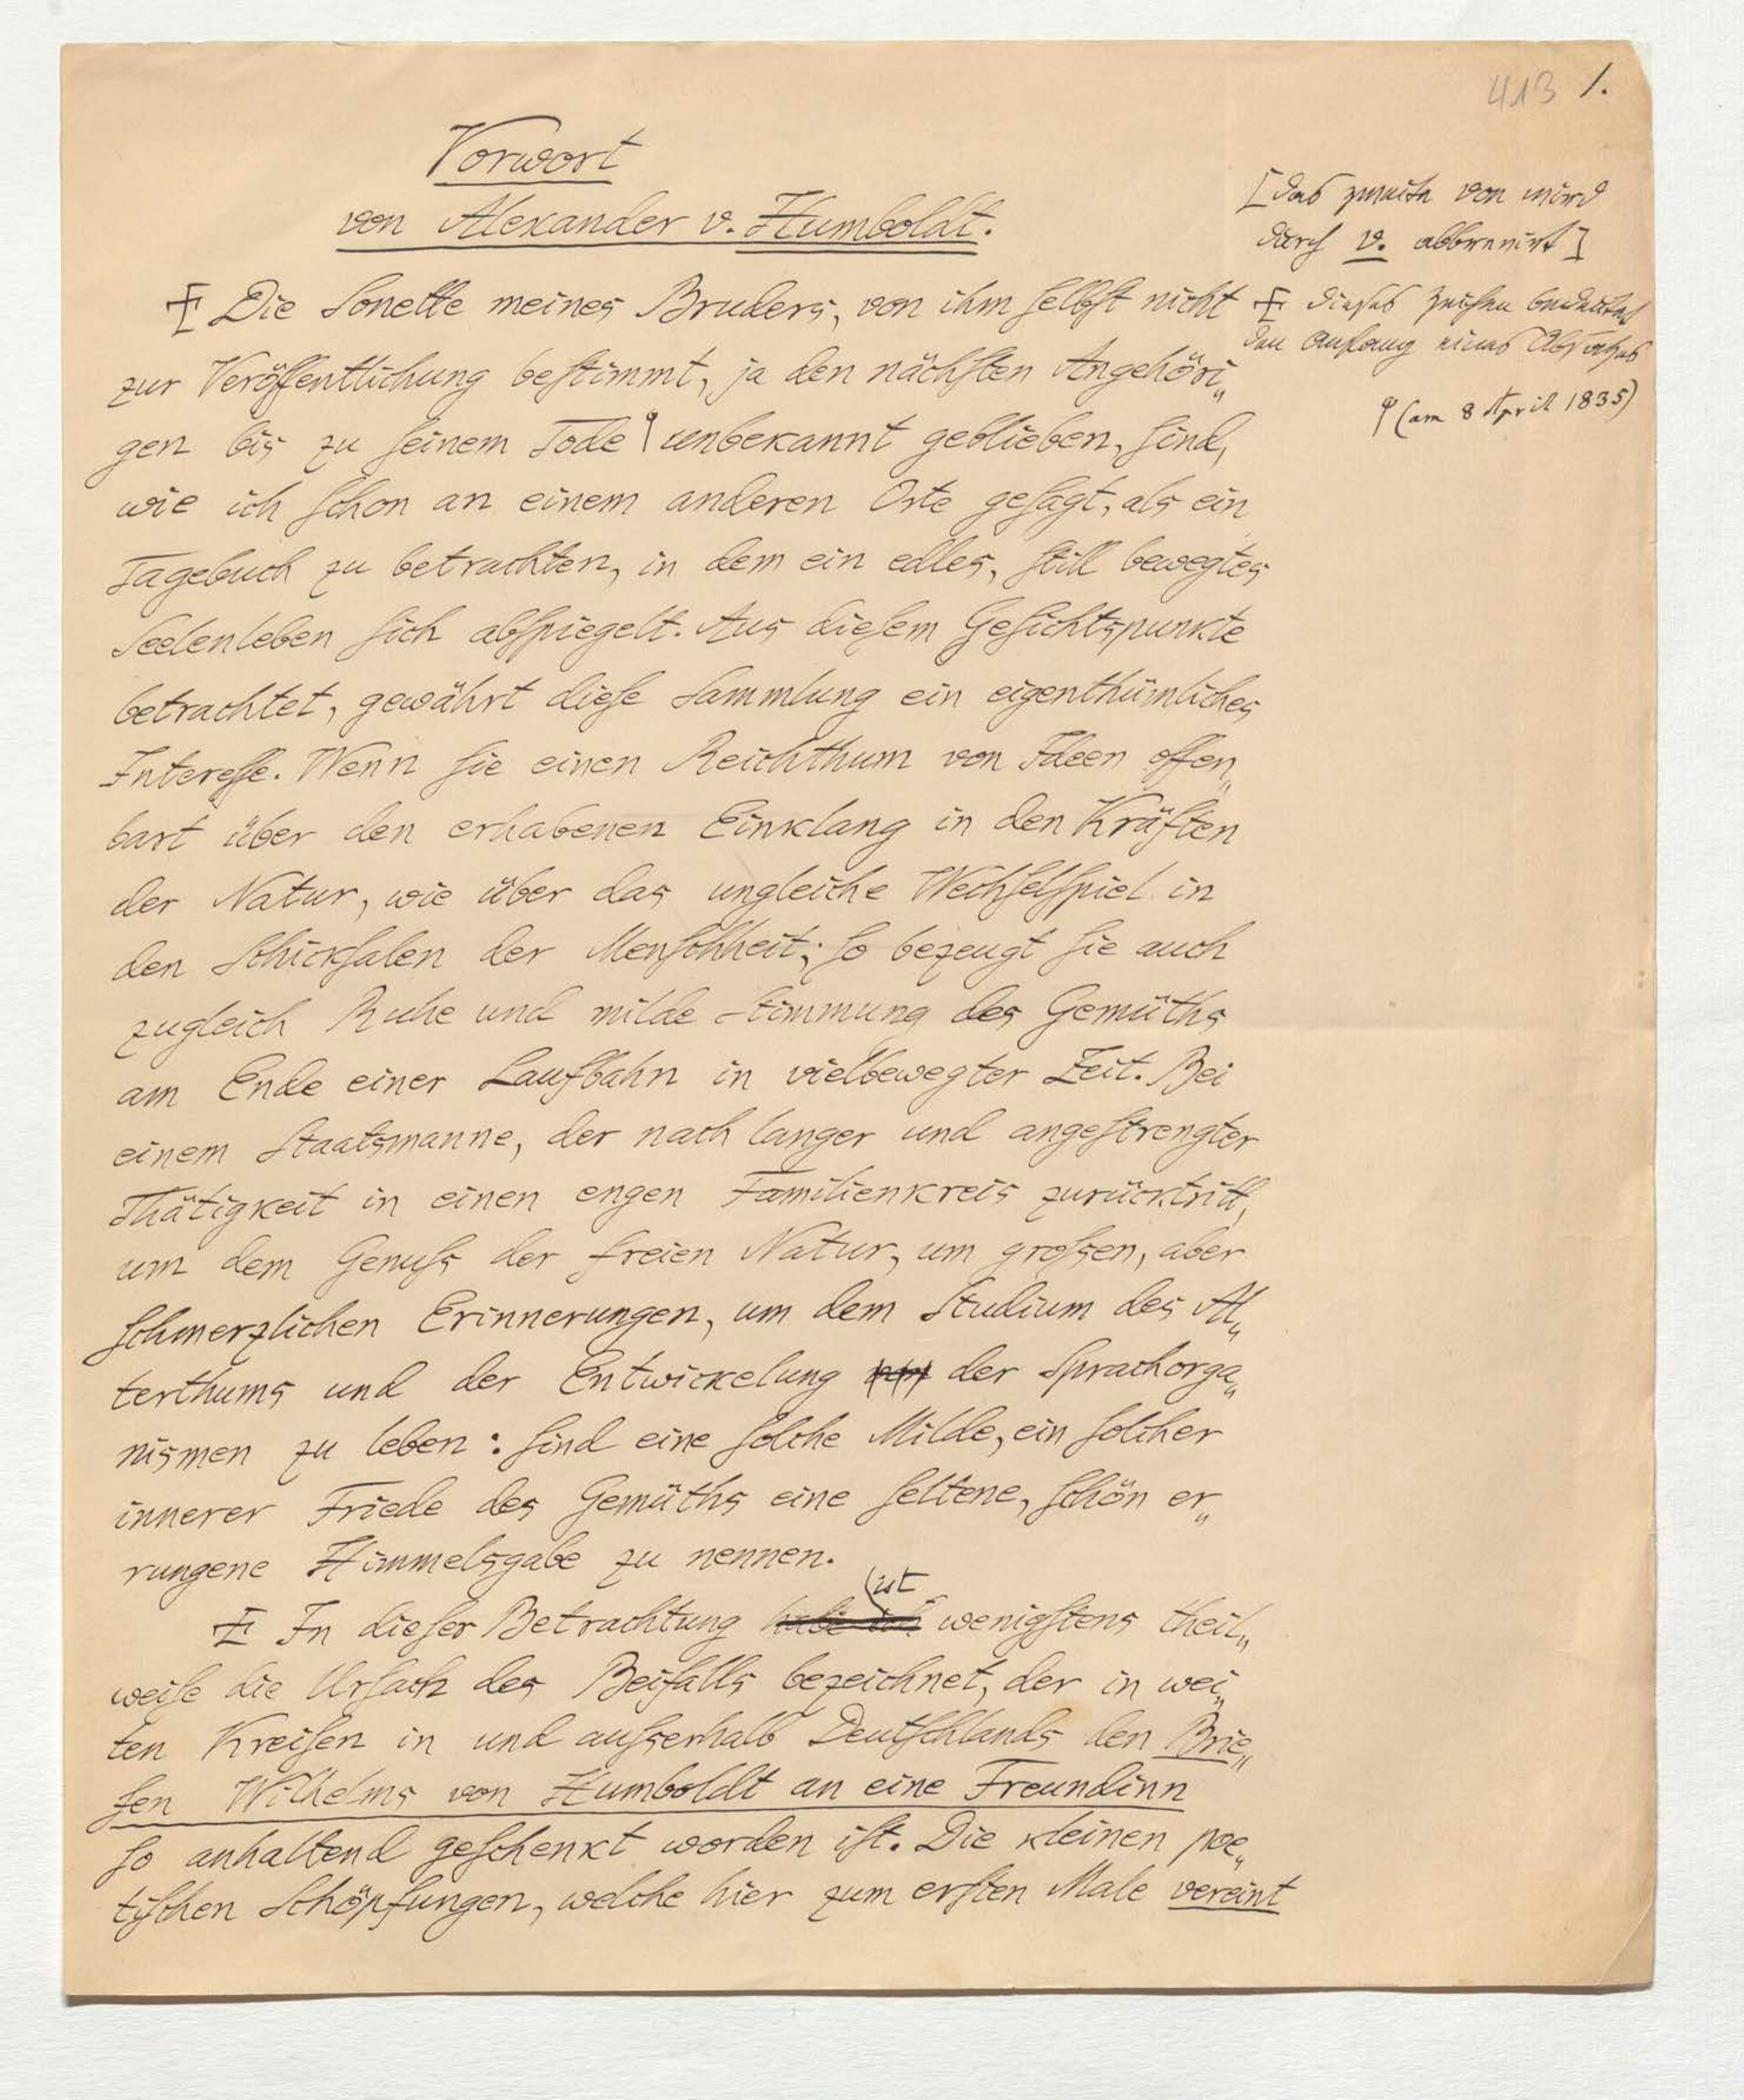 413 1.
Vorwort
von Alexander v. Humboldt.
[das zweite von wird
durch v. abbrevirt]
Die Sonette meines Bruders, von ihm selbst nicht
dieses Zeichen bedeutet
den Anfang eines Absatzes
zur Veröffentlichung bestimmt, ja den nächsten Angehöri„
(am 8 April 1835)
gen bis zu seinem Tode unbekannt geblieben, sind,
wie ich schon an einem anderen Orte gesagt, als ein
Tagebuch zu betrachten, in dem ein edles, still bewegtes
Seelenleben sich abspiegelt. Aus diesem Gesichtspunkte
betrachtet, gewährt diese Sammlung ein eigenthümliches
Interesse. Wenn sie einen Reichthum von Ideen offen„
bart über den erhabenen Einklang in den Kräften
der Natur, wie über das ungleiche Wechselspiel in
den Schicksalen der Menschheit; so bezeugt sie auch
zugleich Ruhe und milde Stimmung des Gemüths
am Ende einer Laufbahn in vielbewegter Zeit. Bei
einem Staatsmanne, der nach langer und angestrengter
Thätigkeit in einen engen Familienkreis zurücktritt,
um dem Genuss der freien Natur, um grossen, aber
schmerzlichen Erinnerungen, um dem Studium des Al„
terthums und der Entwickelung der Sprachorga„
nismen zu leben: sind eine solche Milde, ein solcher
innerer Friede des Gemüths eine seltene, schön er„
rungene Himmelsgabe zu nennen.
ist
In dieser Betrachtung habe ich wenigstens theil„
weise die Ursach des Beifalls bezeichnet, der in wei„
ten Kreisen in und ausserhalb Deutschlands den Brie„
fen Wilhelms von Humboldt an eine Freundinn
so anhaltend geschenkt worden ist. Die kleinen poe„
tischen Schöpfungen, welche hier zum ersten Male vereint